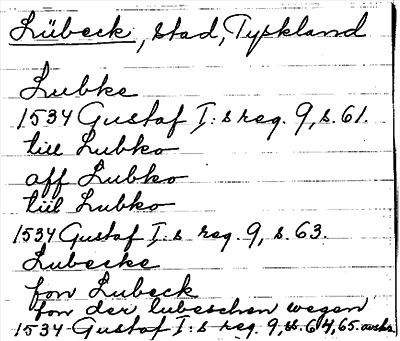 Lübeck, stad, Tyskland
Lubke
1534 Gustaf I:s reg. 9, s. 61.
till Lubko
aff Lubko
till Lubko
1534 Gustaf I:s reg. 9, s. 63.
Lubecke
fon Lubeck
fon der lubeschen wegen
1534 Gustaf I:s reg. 9, s. 64, 65.